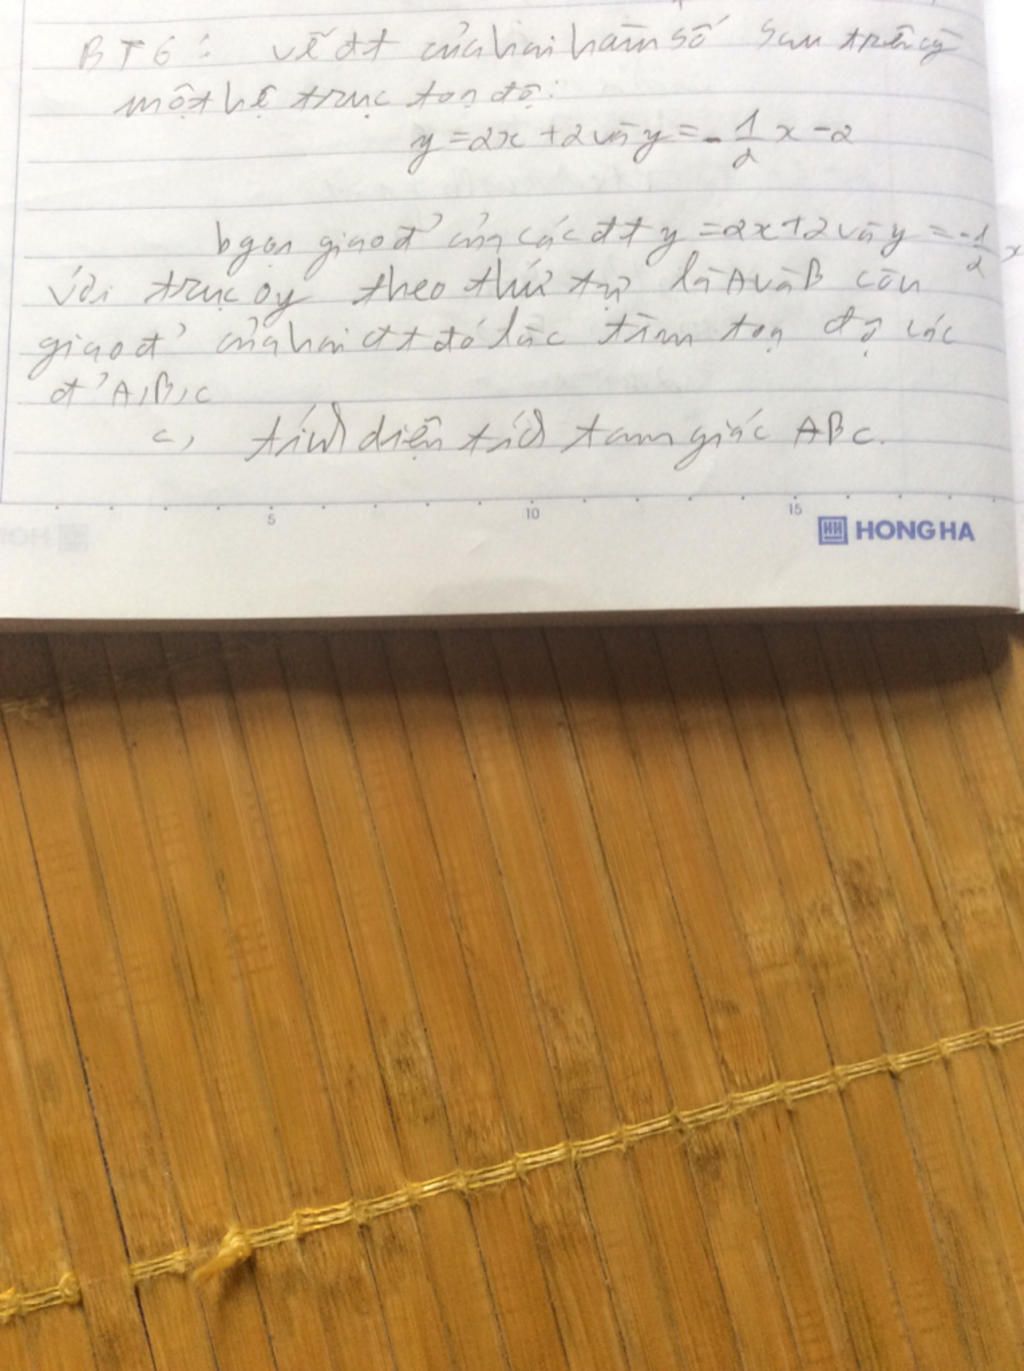 BT6: vẽ đt của hai hàm số sau trên cg
một hệ trục toạ độ:
y = 2x + 2 và y = - 1/2 x - 2
b gọi giao đ' của các đt y = 2x + 2 và y = - 1/2 x
với trục oy theo thứ tự là A và B còn
giao đ' của hai đt đó là c tìm toạ độ các
đ' A, B, c
c, tính diện tích tam giác ABc.
5 10 15
HH HONG HA